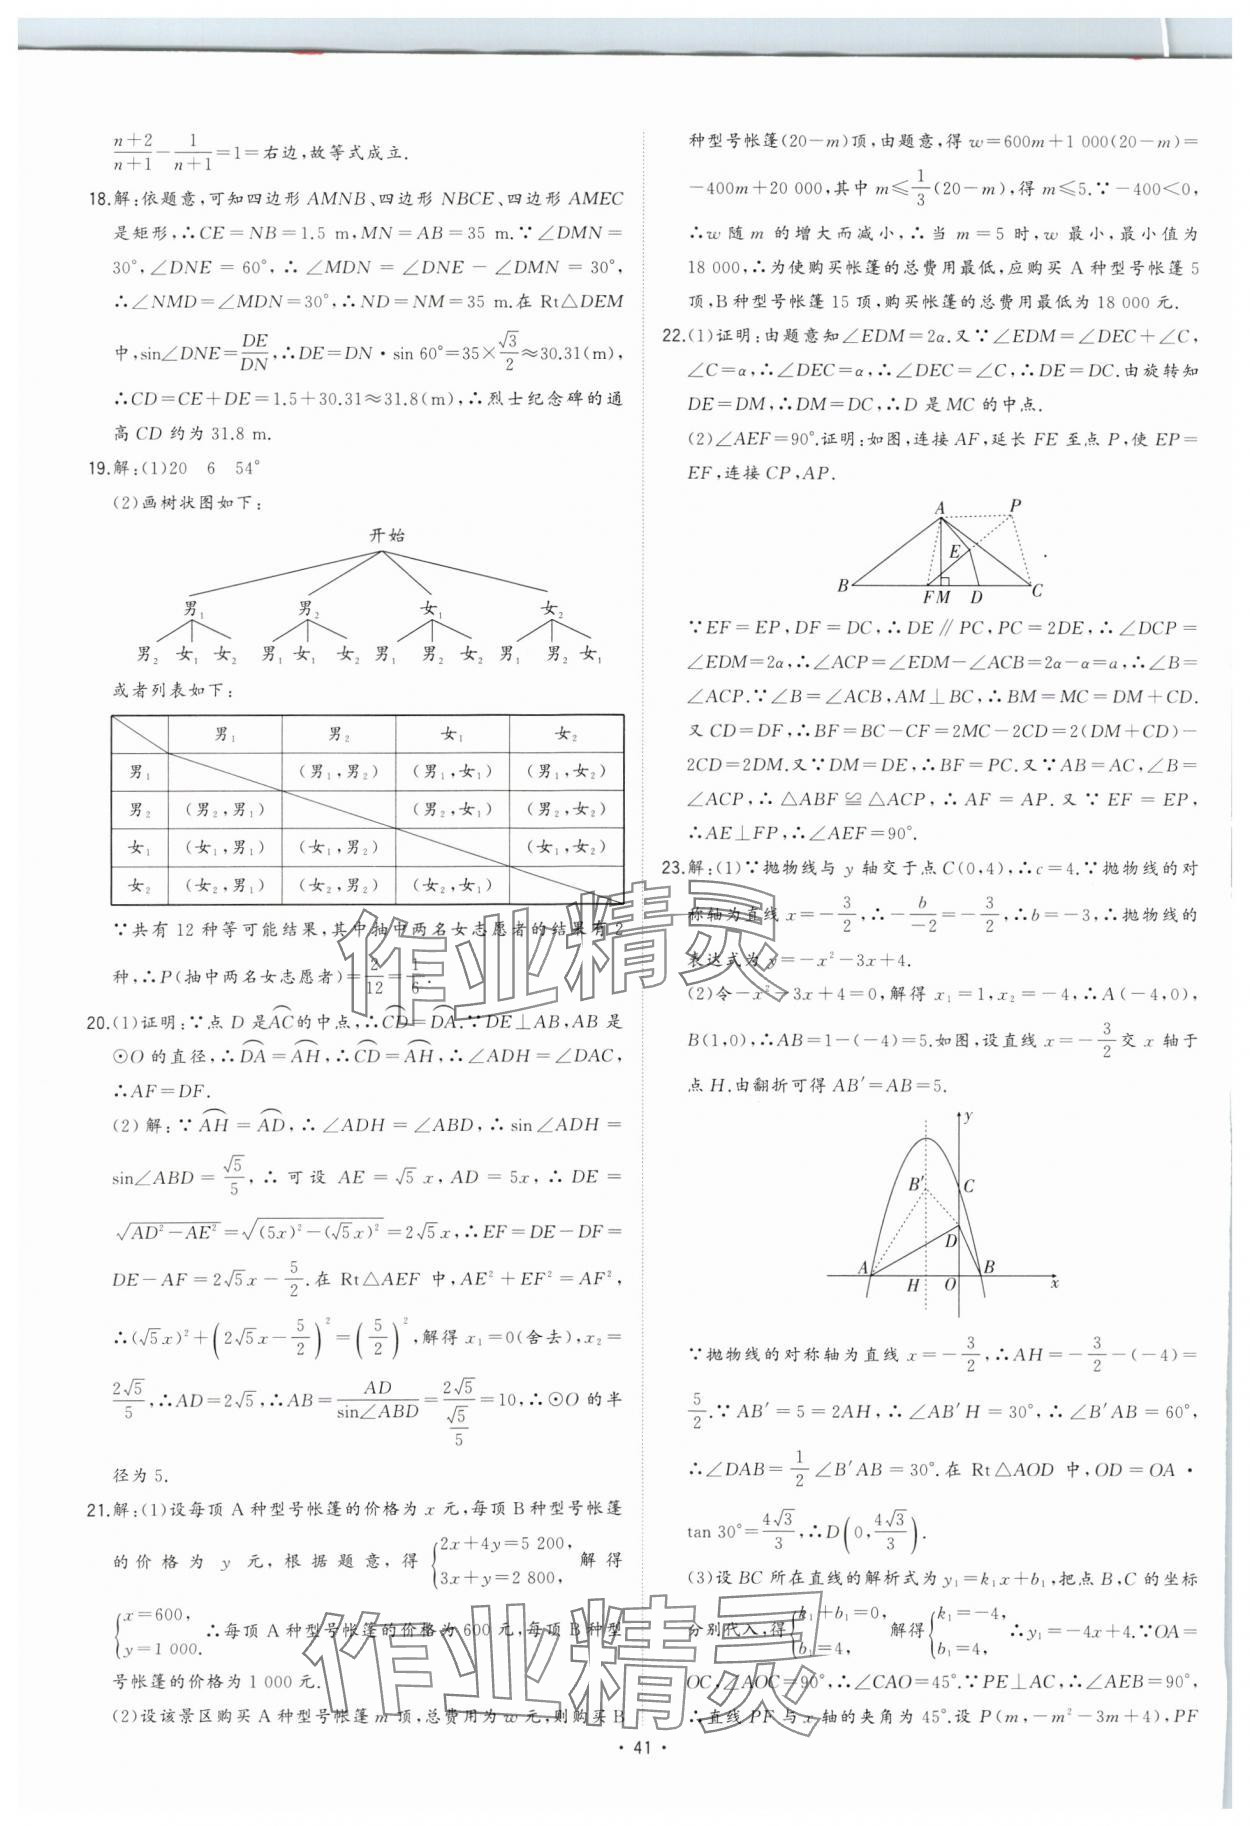 n+2/n+1 − 1/n+1 =1=右边,故等式成立.
18.解:依题意,可知四边形 AMNB、四边形 NBCE、四边形 AMEC
是矩形,∴CE=NB=1.5 m,MN=AB=35 m.∵∠DMN=
30°,∠DNE=60°,∴∠MDN=∠DNE−∠DMN=30°,
∴∠NMD=∠MDN=30°,∴ND=NM=35 m.在 Rt△DEM
中,sin∠DNE=DE/DN,∴DE=DN·sin 60°=35×√3/2≈30.31(m),
∴CD=CE+DE=1.5+30.31≈31.8(m),∴烈士纪念碑的通
高 CD 约为 31.8 m.
19.解:(1)20 6 54°
(2)画树状图如下:
开始
男₁ 男₂ 女₁ 女₂
男₂ 女₁ 女₂ 男₁ 女₁ 女₂ 男₁ 男₂ 女₂ 男₁ 男₂ 女₁
或者列表如下:
男₁ 男₂ 女₁ 女₂
男₁ (男₁,男₂) (男₁,女₁) (男₁,女₂)
男₂ (男₂,男₁) (男₂,女₁) (男₂,女₂)
女₁ (女₁,男₁) (女₁,男₂) (女₁,女₂)
女₂ (女₂,男₁) (女₂,男₂) (女₂,女₁)
∵共有 12 种等可能结果,其中抽中两名女志愿者的结果有 2
种,∴P(抽中两名女志愿者)=2/12=1/6.
20.(1)证明:∵点 D 是AC⌒的中点,∴CD⌒=DA⌒.∵DE⊥AB,AB 是
⊙O 的直径,∴DA⌒=AH⌒,∴CD⌒=AH⌒,∴∠ADH=∠DAC,
∴AF=DF.
(2)解:∵AH⌒=AD⌒,∴∠ADH=∠ABD,∴sin∠ADH=
sin∠ABD=√5/5,∴可设 AE=√5x,AD=5x,∴DE=
√(AD²−AE²)=√((5x)²−(√5x)²)=2√5x,∴EF=DE−DF=
DE−AF=2√5x−5/2.在 Rt△AEF 中,AE²+EF²=AF²,
∴(√5x)²+(2√5x−5/2)²=(5/2)²,解得 x₁=0(舍去),x₂=
2√5/5,∴AD=2√5,∴AB=AD/sin∠ABD=(2√5)/(√5/5)=10,∴⊙O 的半
径为 5.
21.解:(1)设每顶 A 种型号帐篷的价格为 x 元,每顶 B 种型号帐篷
的价格为 y 元,根据题意,得{2x+4y=5 200, 3x+y=2 800,解得
{x=600, y=1 000. ∴每顶 A 种型号帐篷的价格为 600 元,每顶 B 种型
号帐篷的价格为 1 000 元.
(2)设该景区购买 A 种型号帐篷 m 顶,总费用为 w 元,则购买 B
种型号帐篷(20−m)顶,由题意,得 w=600m+1 000(20−m)=
−400m+20 000,其中 m≤1/3(20−m),得 m≤5.∵−400<0,
∴w 随 m 的增大而减小,∴当 m=5 时,w 最小,最小值为
18 000,∴为使购买帐篷的总费用最低,应购买 A 种型号帐篷 5
顶,B 种型号帐篷 15 顶,购买帐篷的总费用最低为 18 000 元.
22.(1)证明:由题意知∠EDM=2α.又∵∠EDM=∠DEC+∠C,
∠C=α,∴∠DEC=α,∴∠DEC=∠C,∴DE=DC.由旋转知
DE=DM,∴DM=DC,∴D 是 MC 的中点.
(2)∠AEF=90°.证明:如图,连接 AF,延长 FE 至点 P,使 EP=
EF,连接 CP,AP.
A P
E
B F M D C
∵EF=EP,DF=DC,∴DE∥PC,PC=2DE,∴∠DCP=
∠EDM=2α,∴∠ACP=∠EDM−∠ACB=2α−α=a,∴∠B=
∠ACP.∵∠B=∠ACB,AM⊥BC,∴BM=MC=DM+CD.
又 CD=DF,∴BF=BC−CF=2MC−2CD=2(DM+CD)−
2CD=2DM.又∵DM=DE,∴BF=PC.又∵AB=AC,∠B=
∠ACP,∴△ABF≌△ACP,∴AF=AP.又∵EF=EP,
∴AE⊥FP,∴∠AEF=90°.
23.解:(1)∵抛物线与 y 轴交于点 C(0,4),∴c=4.∵抛物线的对
称轴为直线 x=−3/2,∴−b/−2=−3/2,∴b=−3,∴抛物线的
表达式为 y=−x²−3x+4.
(2)令−x²−3x+4=0,解得 x₁=1,x₂=−4,∴A(−4,0),
B(1,0),∴AB=1−(−4)=5.如图,设直线 x=−3/2交 x 轴于
点 H.由翻折可得 AB′=AB=5.
y
B′ C
D
A H O B x
∵抛物线的对称轴为直线 x=−3/2,∴AH=−3/2−(−4)=
5/2.∵AB′=5=2AH,∴∠AB′H=30°,∴∠B′AB=60°,
∴∠DAB=1/2∠B′AB=30°.在 Rt△AOD 中,OD=OA·
tan 30°=4√3/3,∴D(0,4√3/3).
(3)设 BC 所在直线的解析式为 y₁=k₁x+b₁,把点 B,C 的坐标
分别代入,得{k₁+b₁=0, b₁=4, 解得{k₁=−4, b₁=4, ∴y₁=−4x+4.∵OA=
OC,∠AOC=90°,∴∠CAO=45°.∵PE⊥AC,∴∠AEB=90°,
∴直线 PF 与 x 轴的夹角为 45°.设 P(m,−m²−3m+4),PF
·41·
作业精灵
作业精灵